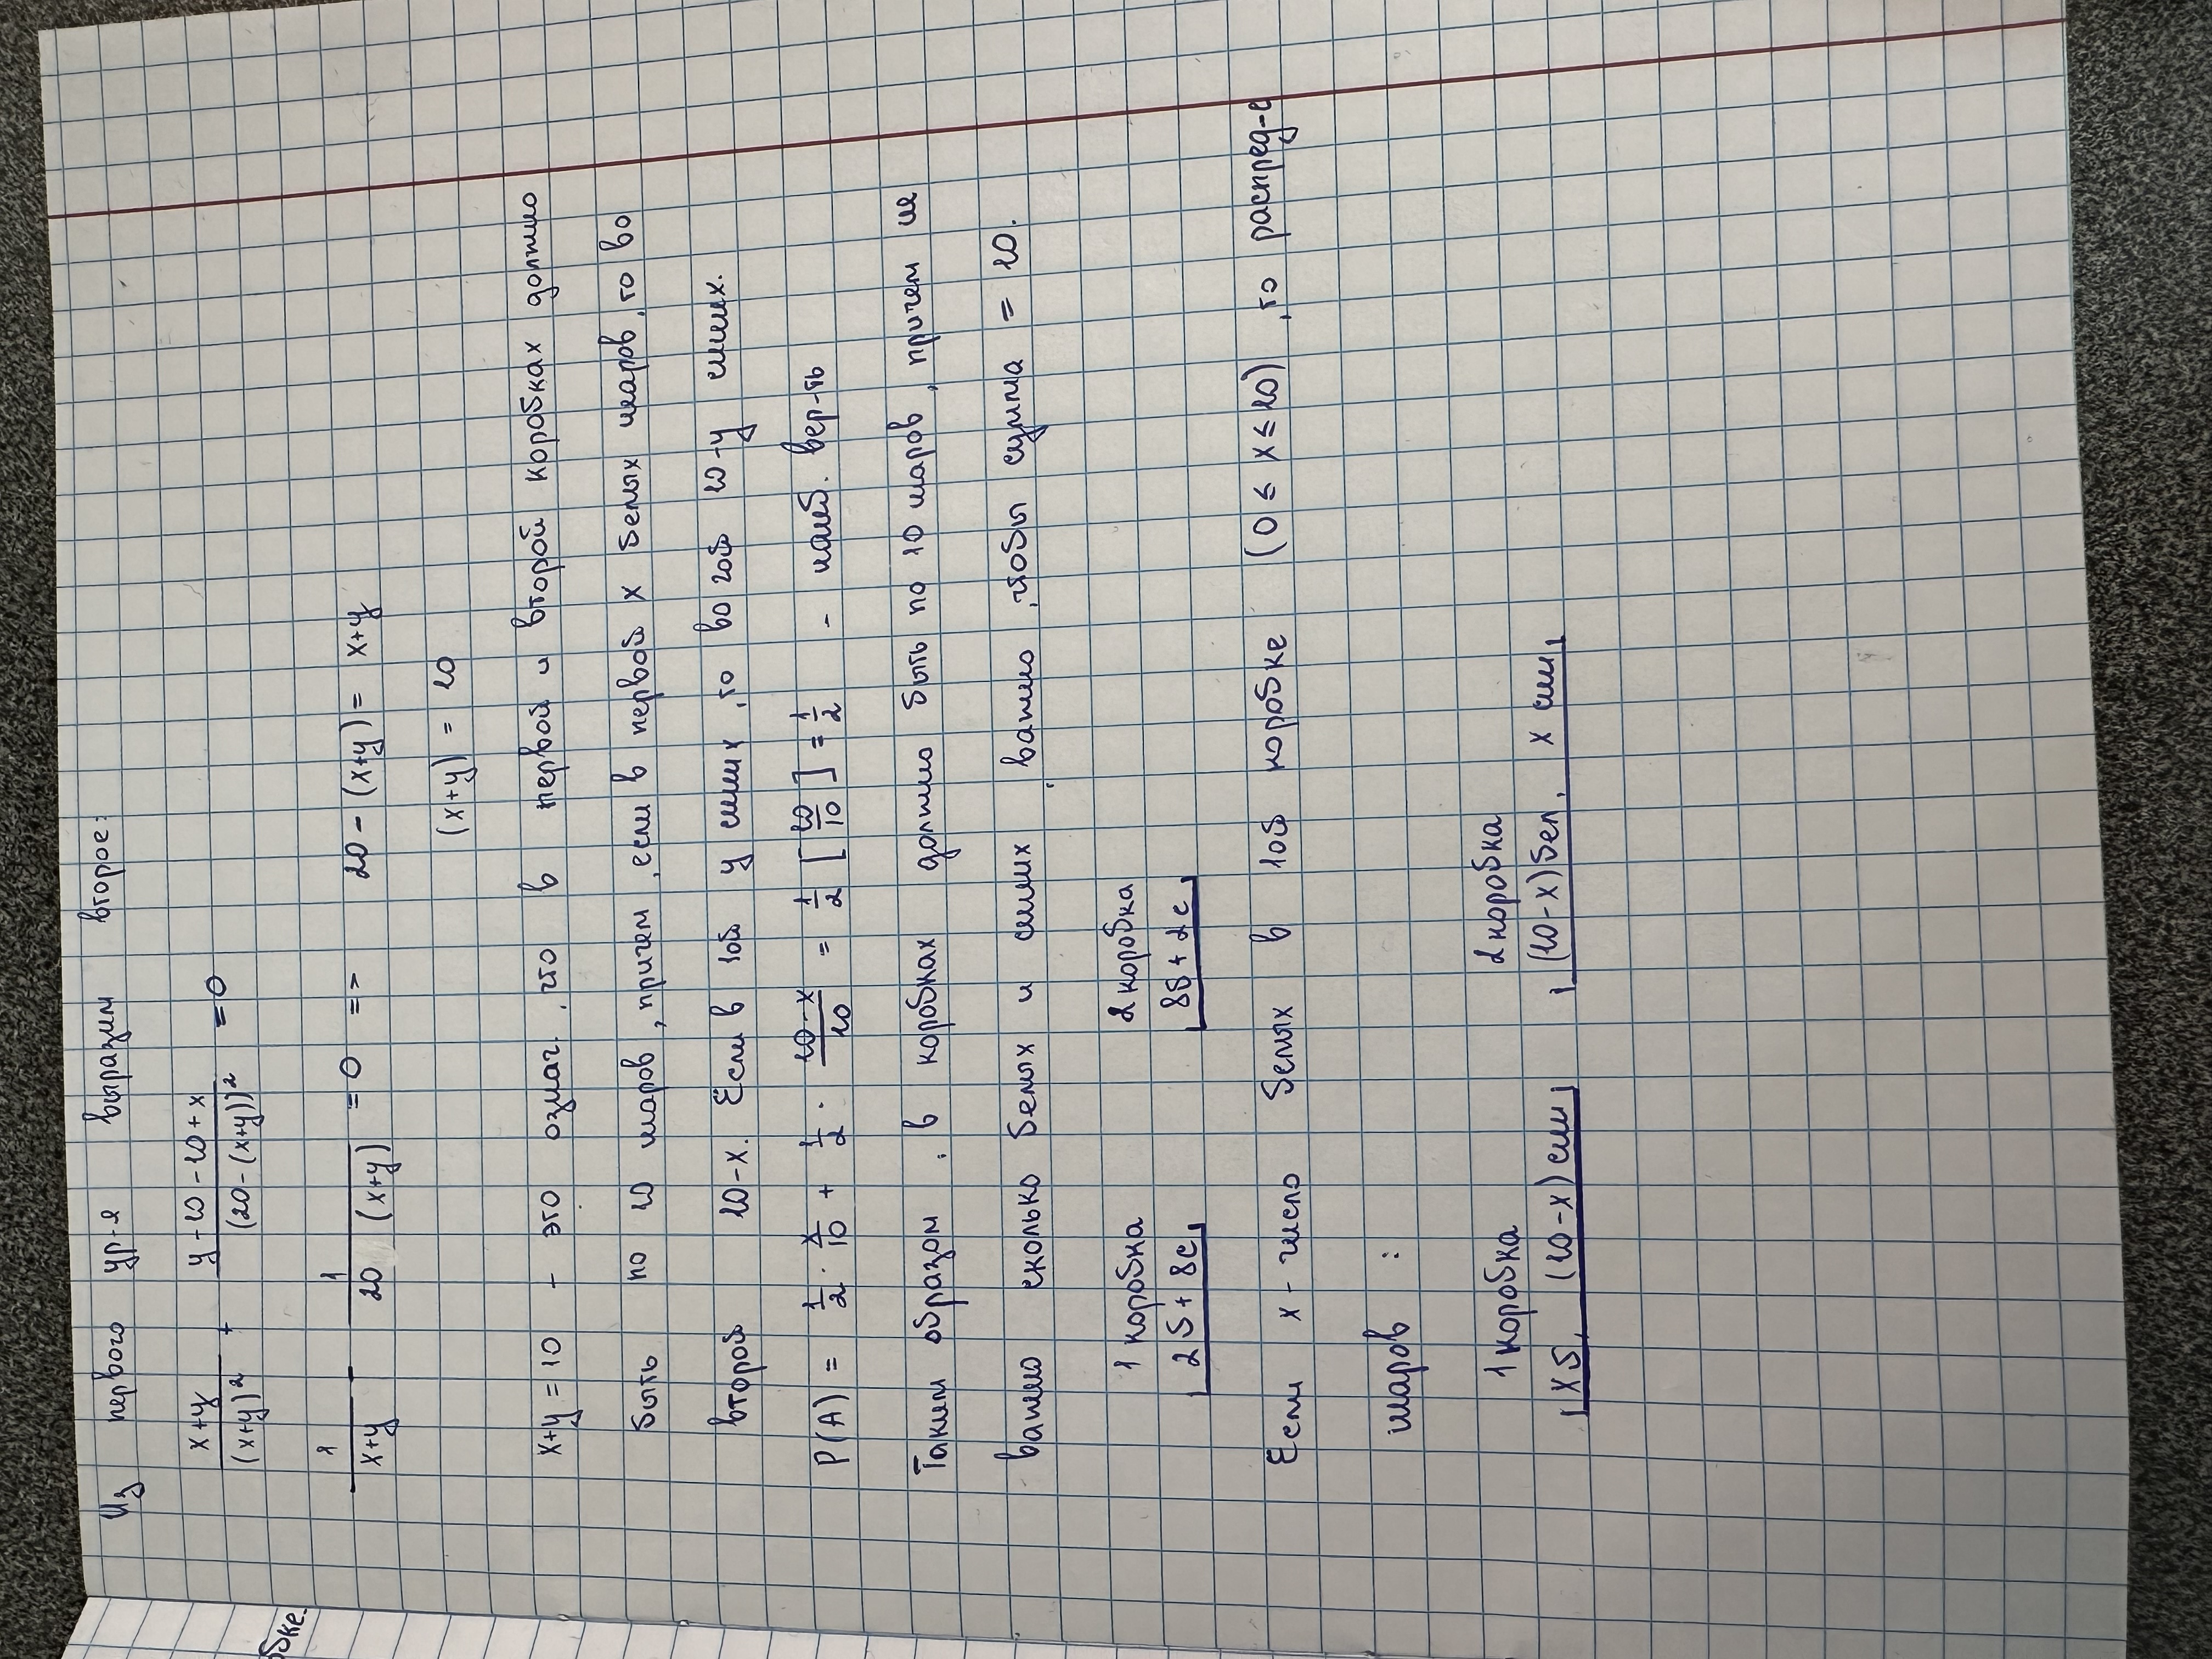 Из первого ур-я выразим второе:
(x+y)/(x+y)² + (y-10-10+x)/(20-(x+y))² = 0
бке.
1/(x+y) - 1/(20 (x+y)) = 0 => 20-(x+y) = x+y
(x+y) = 10
x+y = 10 - это означ. что в первой и второй коробках должно
быть по 10 шаров, причем, если в первой x белых шаров, то во
второй 10-x. Если в 1ой y синих, то во 2ой 10-y синих.
P(A) = 1/2 · x/10 + 1/2 · (10-x)/10 = 1/2 [10/10] = 1/2 - наиб. вер-ть
Таким образом, в коробках должно быть по 10 шаров, причем не
важно сколько белых и синих, важно, чтобы сумма = 10.
1 коробка 2 коробка
2б + 8с 8б + 2с
Если x - число белых в 1ой коробке (0 ≤ x ≤ 10), то распред-е
шаров :
1 коробка 2 коробка
xб, (10-x) син (10-x) бел, x син